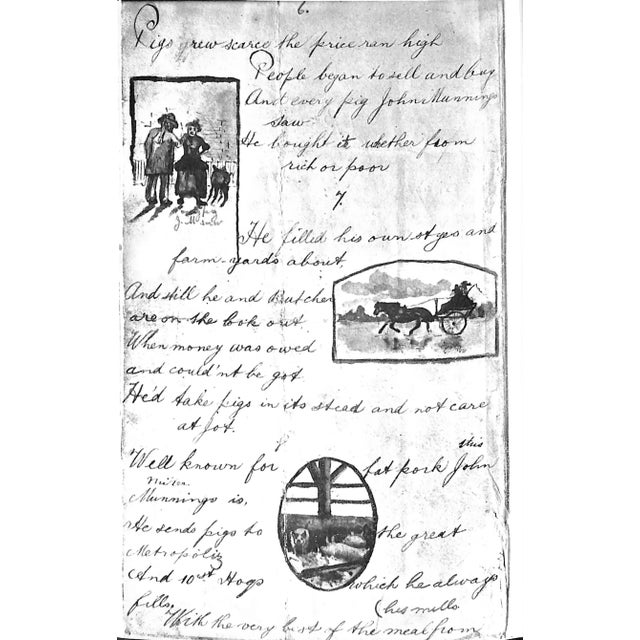 6.
Pigs grew scarce the price ran high
People began to sell and buy
And every pig John Munnings
saw
He bought it whether from
rich or poor
7.
He filled his own styes and
farm-yards about,
And still he and Butcher
are on the look out
When money was owed
and could'nt be got
He'd take pigs in its stead and not care
a jot.
Well known for this fat pork John
Munnings is,
He sends pigs to the great
Metropolis
And 10 st Hogs which he always
fills,
(his mills
With the very best of the meal from